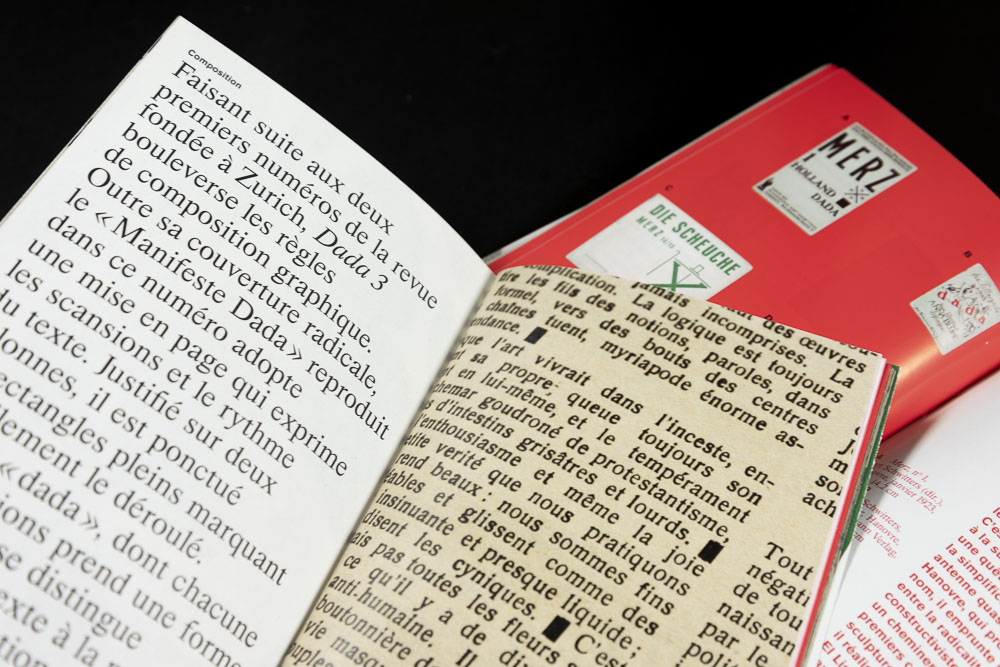 Composition
Faisant suite aux deux
premiers numéros de la revue
fondée à Zurich, Dada 3
bouleverse les règles
de composition graphique.
Outre sa couverture radicale,
le « Manifeste Dada » reproduit
dans ce numéro adopte
une mise en page qui exprime
les scansions et le rythme
du texte. Justifié sur deux
donnes, il est ponctué
ectangles pleins marquant
llement le déroulé.
« dada » dont chacune
ions prend une forme
se distingue
exte à la
jamais incomprises. La
œuvres
tire les fils des notions, paroles, dans
La logique est toujours
formel, vers des bouts des centres
chaînes tuent, myriapode énorme as-
endance. ■
que l'art vivrait dans l'inceste, en-
propre queue toujours son
en lui-même, et le tempérament
chemar goudronné de protestantisme,
s d'intestins grisâtres et lourds. ■
l'enthousiasme et même la joie
etite verité que nous pratiquons
rend beaux: nous sommes fins
ables et glissent comme des
insinuante et presque liquide;
disent les cyniques. ■ C'est
ais pas toutes les fleurs
ce qu'il y a de
anti-humaine. Il
boutonnière
vie
ach
Tout
négati
de tou
naissan
par le
A
MERZ
1
HOLLAND
DADA
C
DIE SCHEUCHE
MERZ 14/15
X
B
d a d a
D
Merz, n° 1,
Schwitters (dir.),
janvier 1923,
Schwitters,
Hanovre,
Verlag,
C'es
à la su
une quê
la simplifi
antenne qua
nom, il emprunt
Hanovre, qui pe
entre la radicalit
constructivis
un chemin
premiers
sculpteu
il réalis
El Li